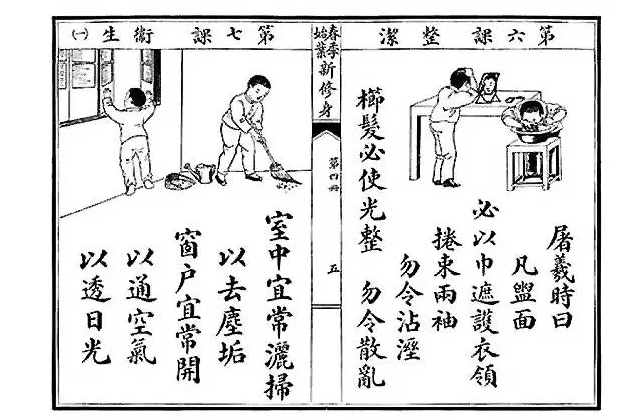 第六課 整潔
屠羲時曰
凡盥面
必以巾遮護衣領
捲束兩袖
勿令沾溼
櫛髮必使光整 勿令散亂
春季始業新修身
第四冊
五
第七課 衛生 (一)
室中宜常灑掃
以去塵垢
窗戶宜常開
以通空氣
以透日光